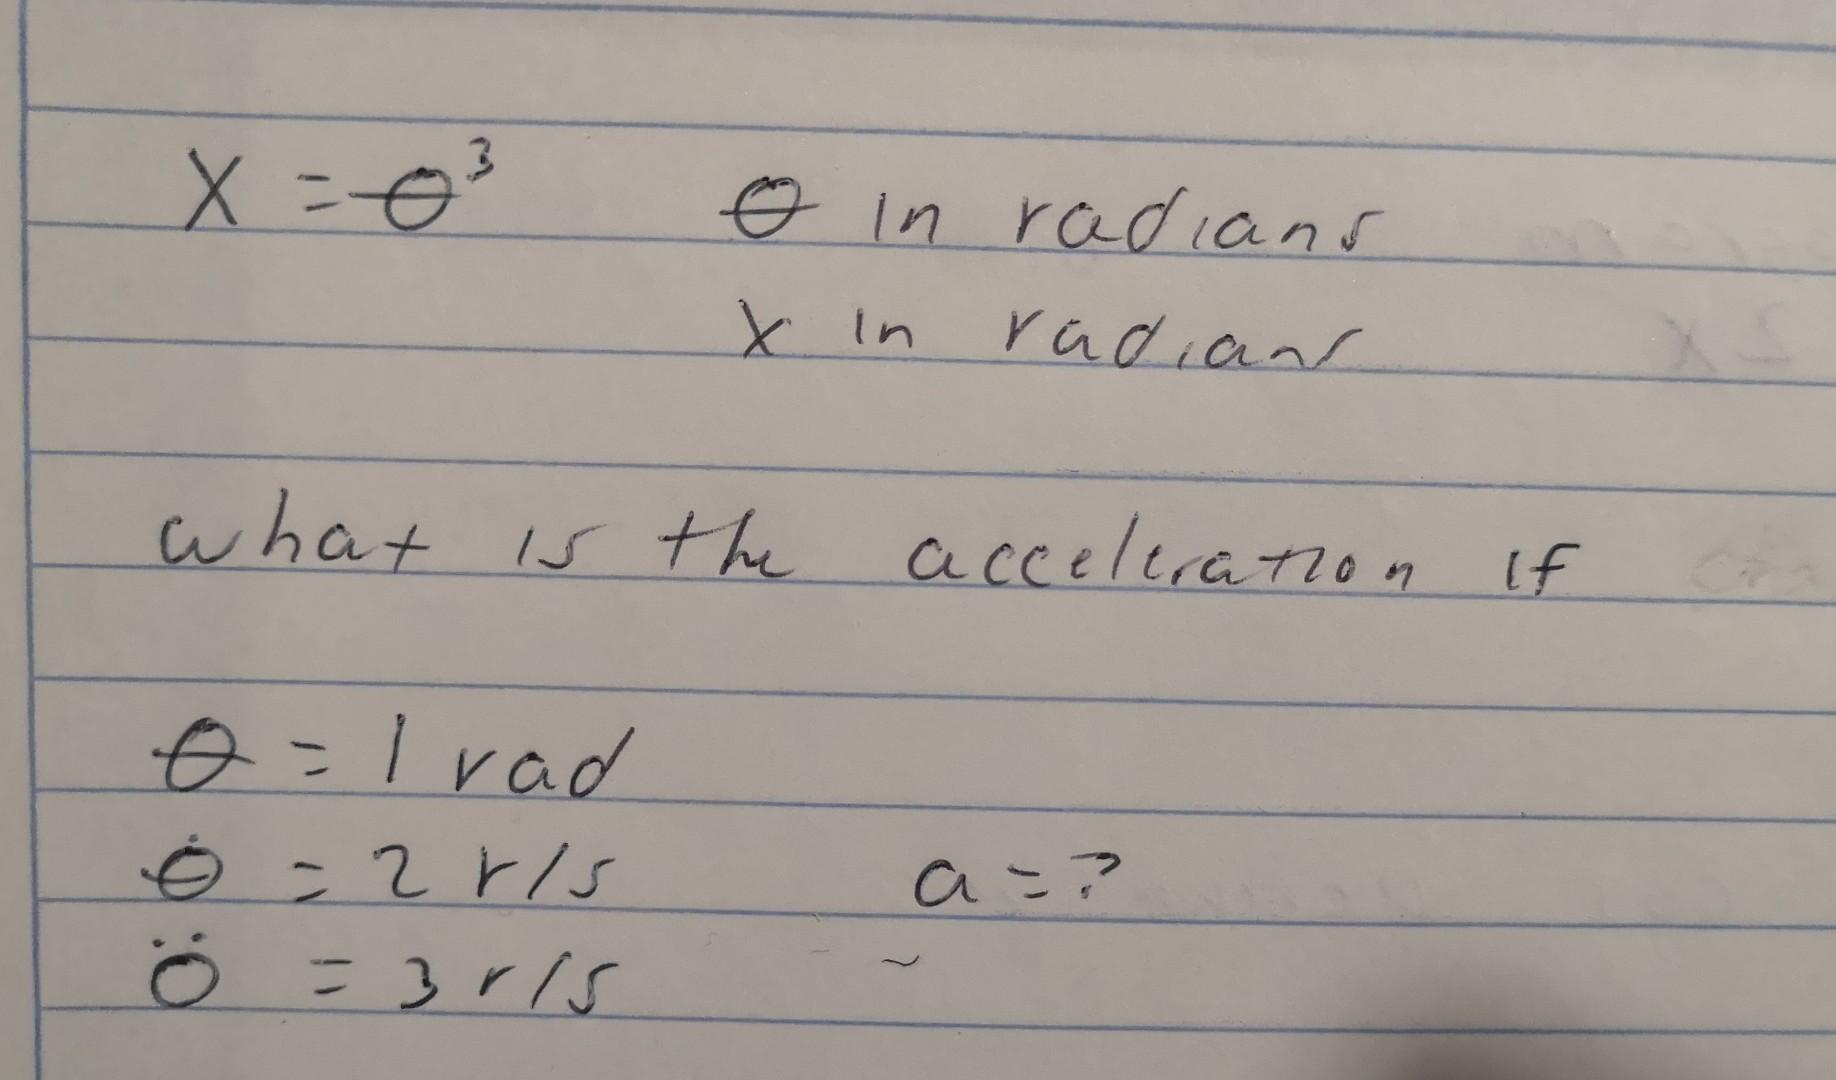 X = θ³ θ in radians
x in radians
what is the acceleration if
θ = 1 rad
θ̇ = 2 r/s a = ?
Ö = 3 r/s